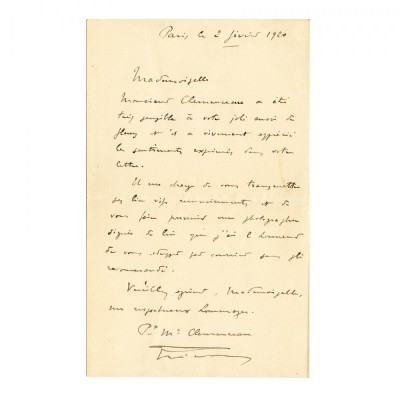 Paris le 2 février 1920
Mademoiselle
Monsieur Clemenceau a été
très sensible à votre joli envoi de
fleurs et il a vivement apprécié
les sentiments exprimés dans votre
lettre.
Il me charge de vous transmettre
ses bien vifs remerciements et de
vous faire parvenir une photographie
signée de lui que j'ai l'honneur
de vous par courrier sous pli
recommandé.
Veuillez agréer, Mademoiselle,
mes respectueux hommages.
Pr Mr Clemenceau